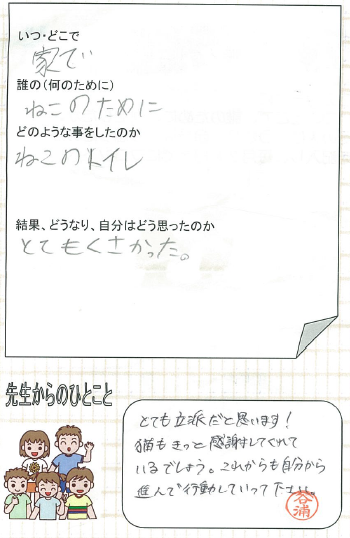 いつ・どこで
家で
誰の(何のために)
ねこのために
どのような事をしたのか
ねこのトイレ
結果、どうなり、自分はどう思ったのか
とてもくさかった。
先生からのひとこと
とても立派だと思います!
猫もきっと感謝してくれて
いるでしょう。これからも自分から
進んで行動していって下さい。